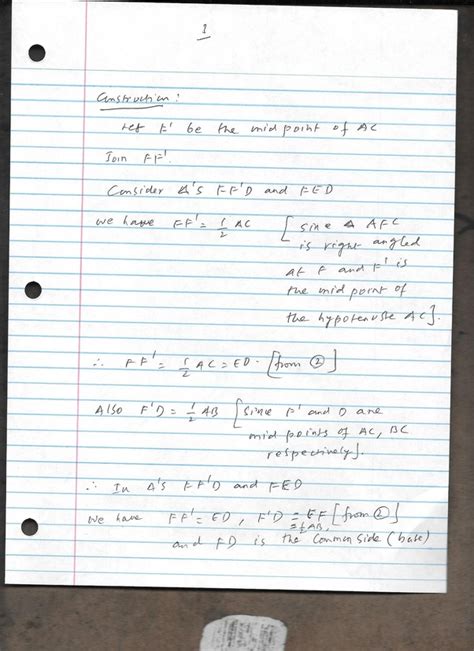 1
Construction:
Let F' be the mid point of AC
Join FF'.
Consider Δ's FF'D and FED
we have FF' = 1/2 AC [since Δ AFC
is right angled
at F and F' is
the mid point of
the hypotenuse AC].
∴ FF' = 1/2 AC = ED. [from ②]
Also F'D = 1/2 AB [since F' and D are
mid points of AC, BC
respectively].
∴ In Δ's FF'D and FED
we have FF' = ED, F'D = EF [from ②]
= 1/2 AB,
and FD is the common side (base)